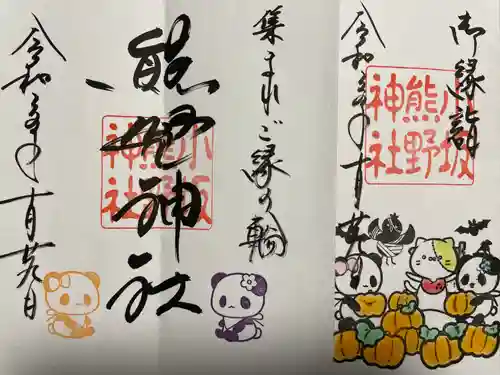 御縁
令和年十月廿
小坂
熊野
神社
集まれご縁の輪
熊野神社
小坂
熊野
神社
令和年十月廿九日